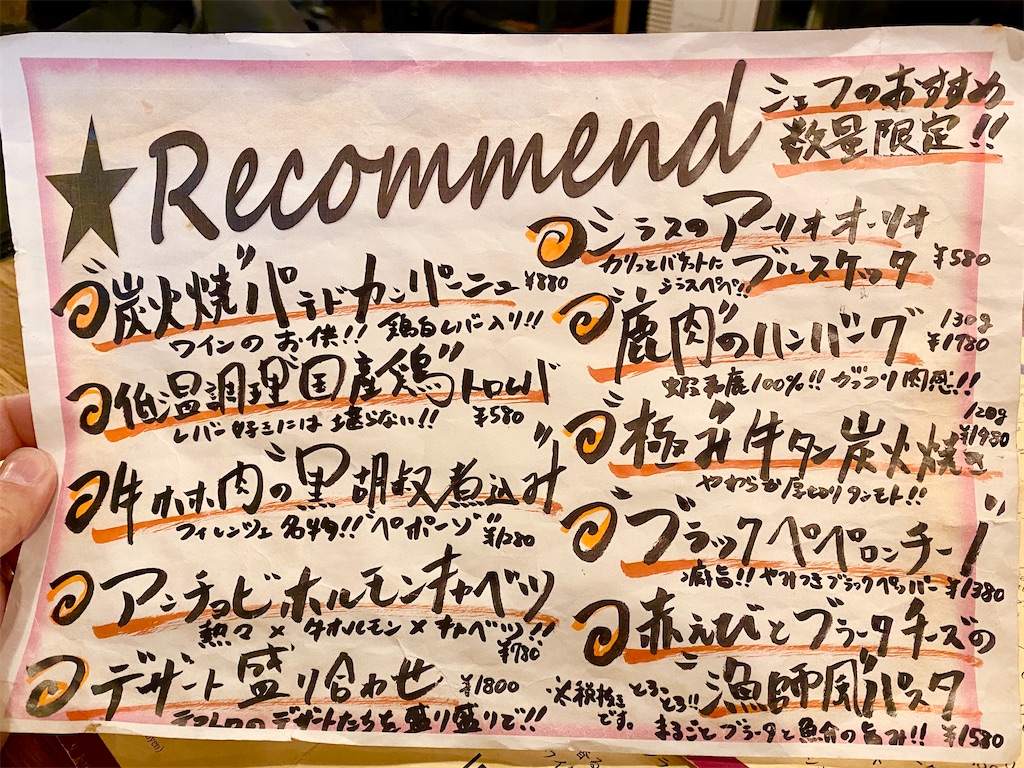 ★Recommend
シェフのおすすめ
数量限定!!
炭火焼パテドカンパーニュ ¥880
ワインのお供!! 鶏白レバー入り!!
低温調理国産鶏トロレバ
レバー好きには堪らない!! ¥580
牛ホホ肉の黒胡椒煮込み
フィレンツェ名物!! "ペポーゾ" ¥1280
アンチョビホルモンキャベツ
熱々×牛ホルモン×キャベツ!!
¥780
デザート盛り合わせ ¥1800
デザートたちを盛り盛りで!!
シラスのアーリオオーリオ
カリっとバケットに ブルスケッタ ¥580
シラスペペ!!
鹿肉のハンバーグ 130g
¥1780
蝦夷鹿100%!! ガッツリ肉感!!
極み牛タン炭火焼き 120g
¥1980
やわらか厚切りタンモト!!
ブラックペペロンチーノ
痺旨!! やみつきブラックペッパー ¥1380
赤えびとブラータチーズの
漁師風パスタ
とろとろ!!
まるごとブラータと魚介の旨み!! ¥1580
※税抜き
です。